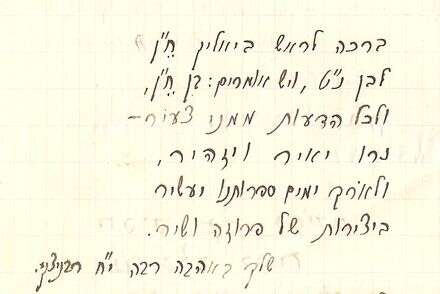 ברכה לראש ביאליק חֵ"ן
לבן נ"ט, ויש אומרים: בֶן חֵ"ן,
ולכל הדעות ממני צעיר–
נרו יאיר ויזהיר,
ולאֹרֶך ימים ספרותנו יעשיר
ביצירות של פרוזה ושיר.
שלך באהבה רבה י"ח רבניצקי.